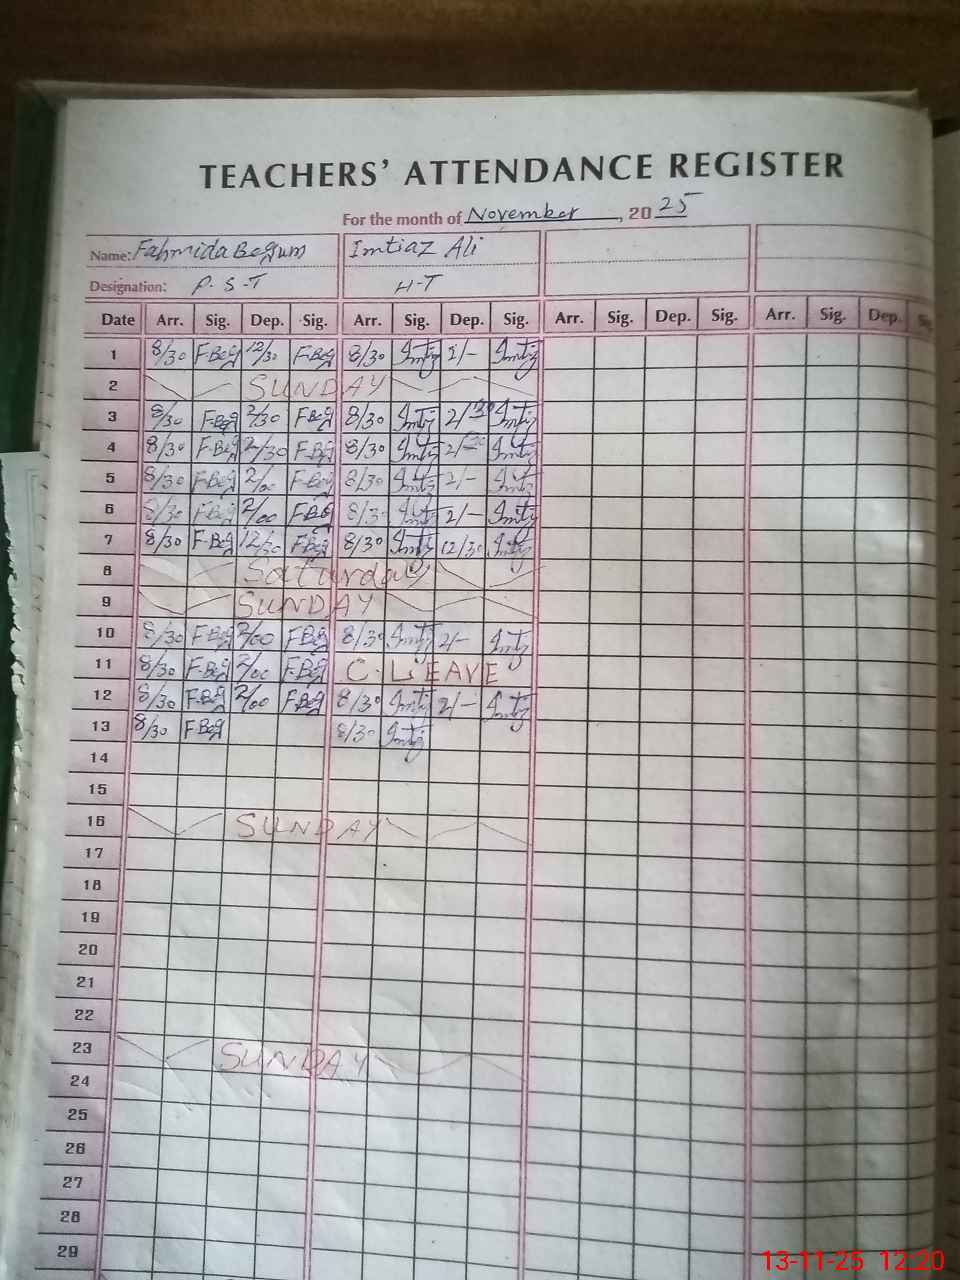 TEACHERS' ATTENDANCE REGISTER
For the month of November, 20 25
Name: Fahmida Begum Imtiaz Ali
Designation: P.S.T H.T
Date Arr. Sig. Dep. Sig. Arr. Sig. Dep. Sig. Arr. Sig. Dep. Sig. Arr. Sig. Dep. Sig.
1 8/30 F-Beg 12/30 F-Beg 8/30 Imtiz 2/- Imtiz
2 SUNDAY
3 8/30 F-Beg 2/30 F-Beg 8/30 Imtiz 2/30 Imtiz
4 8/30 F-Beg 2/30 F-Beg 8/30 Imtiz 2/30 Imtiz
5 8/30 F-Beg 2/00 F-Beg 8/30 Imtiz 2/- Imtiz
6 8/30 F-Beg 2/00 F-Beg 8/30 Imtiz 2/- Imtiz
7 8/30 F-Beg 12/30 F-Beg 8/30 Imtiz 12/30 Imtiz
8 Saturday
9 SUNDAY
10 8/30 F-Beg 2/00 F-Beg 8/30 Imtiz 2/- Imtiz
11 8/30 F-Beg 2/00 F-Beg C.LEAVE
12 8/30 F-Beg 2/00 F-Beg 8/30 Imtiz 2/- Imtiz
13 8/30 F-Beg 8/30 Imtiz
14
15
16 SUNDAY
17
18
19
20
21
22
23 SUNDAY
24
25
26
27
28
29
13-11-25 12:20